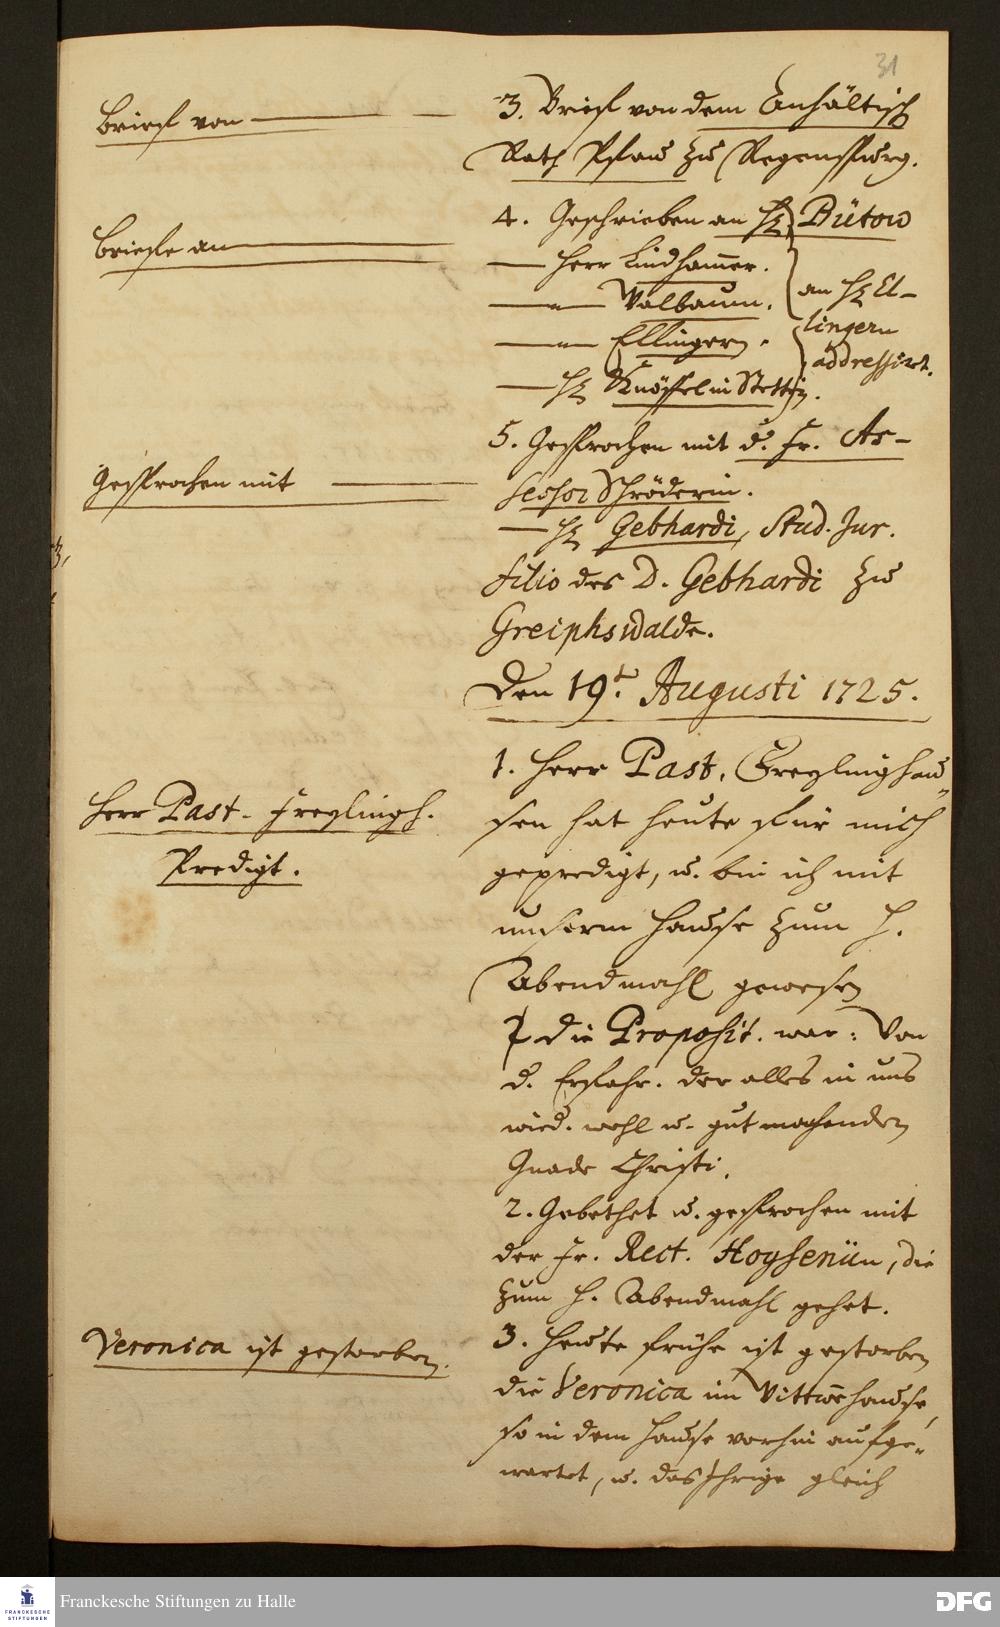 31
Briefe von
3. Brief von dem Anhältisch
Rath Pfau zu Regenspurg.
Briefe an
4. Geschrieben an H. Bütow
— Herr Lindhammer.
— — Walbaum.
— — Ellingern.
— H. Knöffel in Stettin.
an H. El-
lingern
addressirt.
gesprochen mit
5. Gesprochen mit d. Fr. As-
sessor Schröderin.
— H. Gebhardi, Stud. Jur.
filio des D. Gebhardi zu
Greiphswalde.
Den 19.t Augusti 1725.
Herr Past. Freylingh.
Predigt.
1. Herr Past. Freylinghau-
sen hat heute für mich
gepredigt, u. bin ich mit
unserm Hause zum H.
Abendmahl gewesen
die Proposit. war: Von
d. Erfahr. der alles in uns
wied. wohl u. gut machenden
Gnade Christi.
2. Gebethet u. gesprochen mit
der Fr. Rect. Hoysenün, die
zum H. Abendmahl gehet.
Veronica ist gestorben.
3. Heute frühe ist gestorben
die Veronica im Wittwehause,
so in dem Hause vorhin aufge-
wartet, u. das Ihrige gleich
FRANCKESCHE
STIFTUNGEN
Franckesche Stiftungen zu Halle
DFG